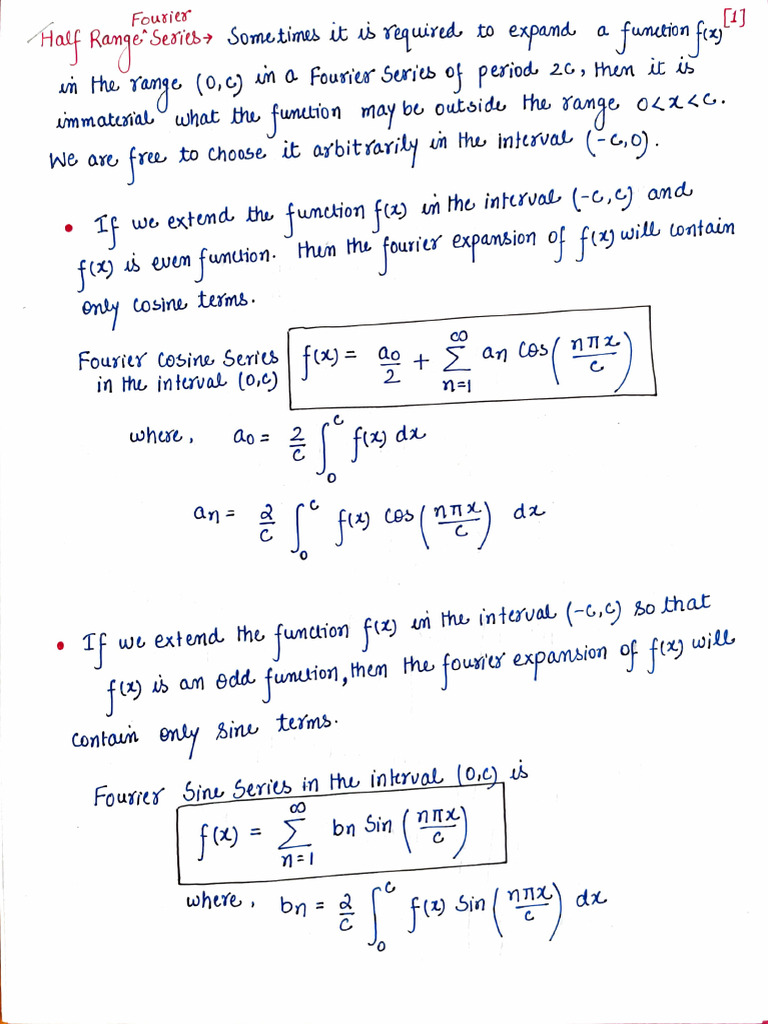 Half Range^Fourier Series → Sometimes it is required to expand a function f(x) [1]
in the range (0,c) in a Fourier Series of period 2c, then it is
immaterial what the function may be outside the range 0<x<c.
We are free to choose it arbitrarily in the interval (-c,0).
• If we extend the function f(x) in the interval (-c,c) and
f(x) is even function. Then the fourier expansion of f(x) will contain
only cosine terms.
Fourier Cosine Series
in the interval (0,c)
f(x) = a0/2 + ∑_{n=1}^{∞} an cos(nπx/c)
where, a0 = 2/c ∫_0^c f(x) dx
an = 2/c ∫_0^c f(x) cos(nπx/c) dx
• If we extend the function f(x) in the interval (-c,c) so that
f(x) is an odd function, then the fourier expansion of f(x) will
contain only sine terms.
Fourier Sine Series in the interval (0,c) is
f(x) = ∑_{n=1}^{∞} bn Sin(nπx/c)
where, bn = 2/c ∫_0^c f(x) Sin(nπx/c) dx